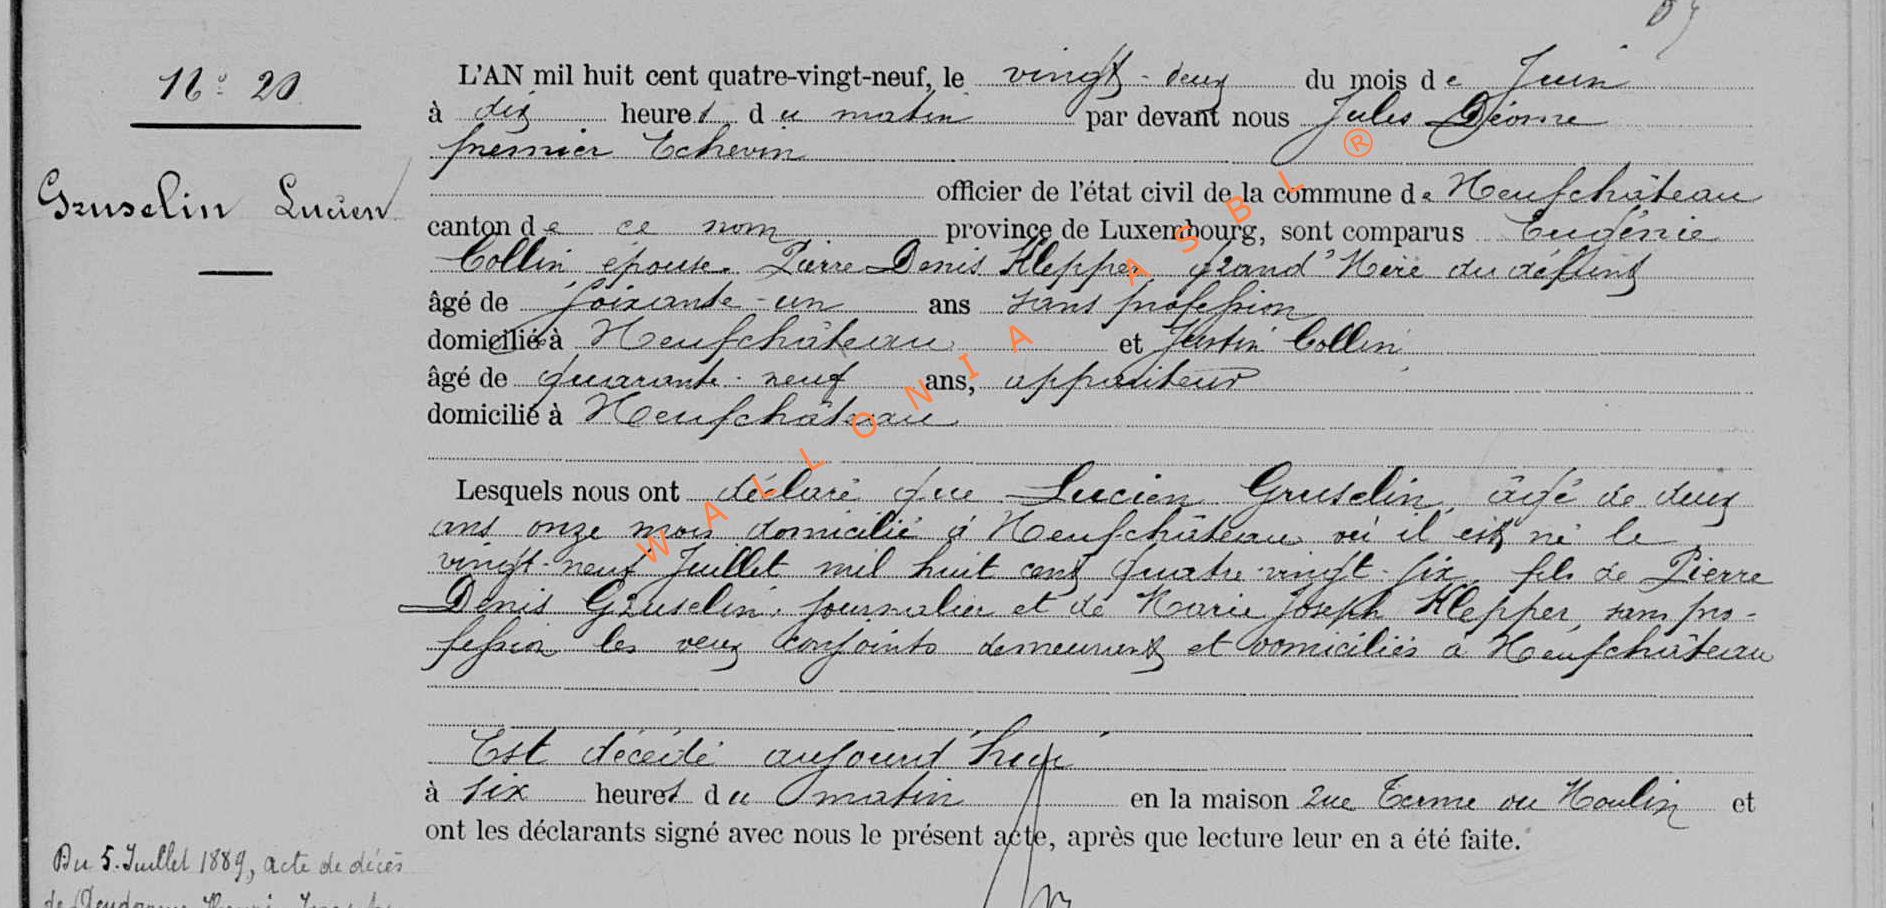 N° 20
Gruselin Lucien
L'AN mil huit cent quatre-vingt-neuf, le vingt-deux du mois de Juin
à dix heures du matin par devant nous Jules Déome
premier Echevin
officier de l'état civil de la commune de Neufchâteau
canton de ce nom province de Luxembourg, sont comparus Eugénie
Collin épouse Pierre Denis Klepper grand'Mère du défunt
âgé de soixante-un ans sans profession
domiciliée à Neufchâteau et Justin Collin
âgé de quarante-neuf ans, appariteur
domicilié à Neufchâteau
Lesquels nous ont déclaré que Lucien Gruselin, âgé de deux
ans onze mois domicilié à Neufchâteau où il est né le
vingt-neuf Juillet mil huit cent quatre-vingt-six, fils de Pierre
Denis Gruselin, journalier et de Marie Joseph Klepper, sans pro-
fession les deux conjoints demeurant et domiciliés à Neufchâteau
Est décédé aujourd'hui
à six heures du matin en la maison rue Terme du Moulin et
ont les déclarants signé avec nous le présent acte, après que lecture leur en a été faite.
Du 5 Juillet 1889, acte de décès
de
WALLONIA ASBL ®